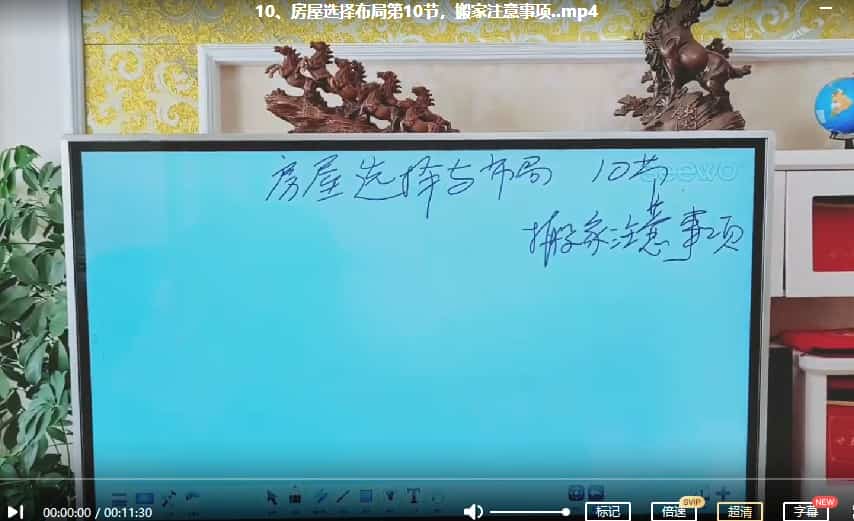 10、房屋选择布局第10节，搬家注意事项..mp4
seewo
房屋选择与布局 10节
搬家注意事项
00:00:00 / 00:11:30
标记
倍速
SVIP
超清
字幕
NEW